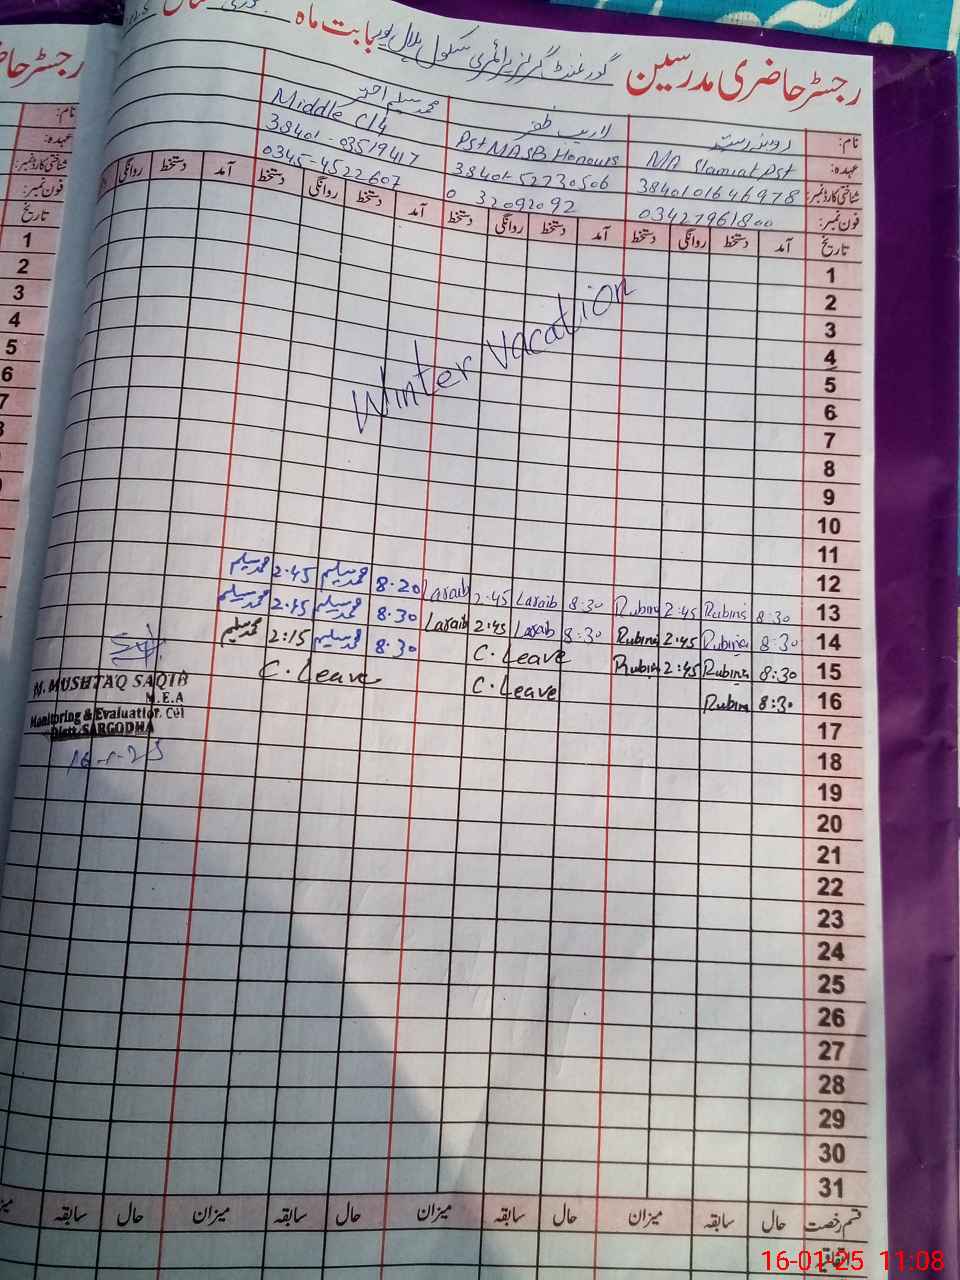 رجسٹر حاضری مدرسین گورنمنٹ گرلز پرائمری سکول بلال پور بابت ماہ
نام: روبینہ رشید لاریب ظفر محمد سلیم احمد
عہدہ: MA Slamiat Pst Pst MA SB Honours Middle C14
شناختی کارڈ نمبر: 3840101646978 38401-52730506 38401-03519417
فون نمبر: 03427961800 0 32092092 0345-4522607
تاریخ آمد دستخط روانگی دستخط آمد دستخط روانگی دستخط آمد دستخط روانگی دستخط آمد دستخط روانگی
1
2
3
4
5
Winter vacation
6
7
8
9
10
11
12
13 8:30 Rubina 2:45 Rubina 8:30 Laraib 2:45 Laraib 8.20 محمد سلیم 2.45 محمد سلیم
14 8:30 Rubina 2:45 Rubina 8:30 Laraib 2:45 Laraib 8.30 محمد سلیم 2:15 محمد سلیم
15 8:30 Rubina 2:45 Rubina C.Leave 8.30 محمد سلیم 2:15 محمد سلیم
16 8:30 Rubina C.Leave C.Leave
17
18
19
20
21
22
23
24
25
26
27
28
29
30
31
M. MUSHTAQ SAQIB
M.E.A
Monitoring & Evaluation Cell
Distt. SARGODHA
16-1-25
قسم رخصت حال سابقہ میزان حال سابقہ میزان حال سابقہ میزان حال سابقہ
اتفاقیہ
رجسٹر حاضری
نام:
عہدہ:
شناختی کارڈ نمبر:
فون نمبر:
تاریخ
1
2
3
4
5
6
7
16-01-25 11:08